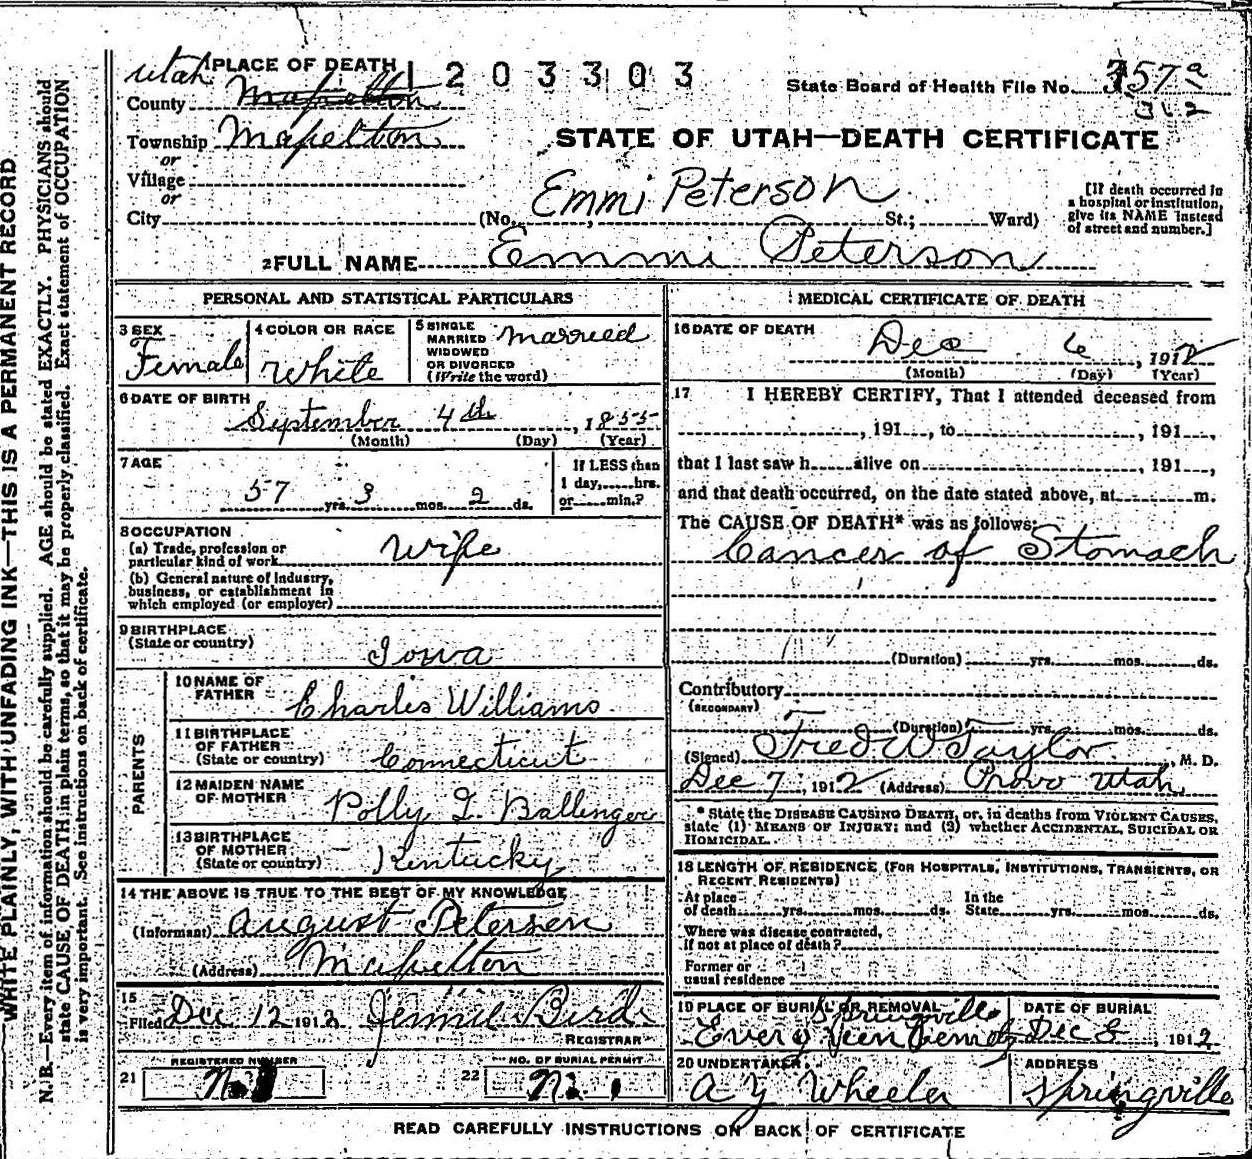 WRITE PLAINLY, WITH UNFADING INK—THIS IS A PERMANENT RECORD
N. B.—Every item of information should be carefully supplied. AGE should be stated EXACTLY. PHYSICIANS should
state CAUSE OF DEATH in plain terms, so that it may be properly classified. Exact statement of OCCUPATION
is very important. See instructions on back of certificate.
1 PLACE OF DEATH
1203303
State Board of Health File No. 357
Utah
County Mapelton
Township Mapelton
or
Village
or
City
STATE OF UTAH—DEATH CERTIFICATE
Emmi Peterson
(No. , St.; Ward)
[If death occurred in
a hospital or institution,
give its NAME instead
of street and number.]
2 FULL NAME Emmi Peterson
PERSONAL AND STATISTICAL PARTICULARS
3 SEX
Female
4 COLOR OR RACE
White
5 SINGLE
MARRIED
WIDOWED
OR DIVORCED
(Write the word)
Married
6 DATE OF BIRTH
September 4th, 1855
(Month) (Day) (Year)
7 AGE
57 yrs. 3 mos. 2 ds.
If LESS than
1 day, hrs.
or min.?
8 OCCUPATION
(a) Trade, profession or
particular kind of work Wife
(b) General nature of industry,
business, or establishment in
which employed (or employer)
9 BIRTHPLACE
(State or country)
Iowa
PARENTS
10 NAME OF
FATHER
Charles Williams
11 BIRTHPLACE
OF FATHER
(State or country)
Connecticut
12 MAIDEN NAME
OF MOTHER
Polly I. Ballinger
13 BIRTHPLACE
OF MOTHER
(State or country)
Kentucky
14 THE ABOVE IS TRUE TO THE BEST OF MY KNOWLEDGE
(Informant) August Peterson
(Address) Mapelton
15
Filed Dec 12 1912 Jennie Bird
REGISTRAR
21
REGISTERED NUMBER
No.
22
NO. OF BURIAL PERMIT
No. 1
MEDICAL CERTIFICATE OF DEATH
16 DATE OF DEATH
Dec 6, 1912
(Month) (Day) (Year)
17 I HEREBY CERTIFY, That I attended deceased from
, 191 , to , 191 ,
that I last saw h alive on , 191 ,
and that death occurred, on the date stated above, at m.
The CAUSE OF DEATH* was as follows:
Cancer of Stomach
(Duration) yrs. mos. ds.
Contributory
(SECONDARY)
(Duration) yrs. mos. ds.
(Signed) Fred W Taylor, M. D.
Dec 7, 1912 (Address) Provo Utah
* State the DISEASE CAUSING DEATH, or, in deaths from VIOLENT CAUSES,
state (1) MEANS OF INJURY; and (2) whether ACCIDENTAL, SUICIDAL OR
HOMICIDAL.
18 LENGTH OF RESIDENCE (FOR HOSPITALS, INSTITUTIONS, TRANSIENTS, OR
RECENT RESIDENTS)
At place
of death yrs. mos. ds.
In the
State yrs. mos. ds.
Where was disease contracted,
if not at place of death?
Former or
usual residence
19 PLACE OF BURIAL OR REMOVAL
Springville
Evergreen
DATE OF BURIAL
Dec 8, 1912
20 UNDERTAKER
A Y Wheeler
ADDRESS
Springville
READ CAREFULLY INSTRUCTIONS ON BACK OF CERTIFICATE